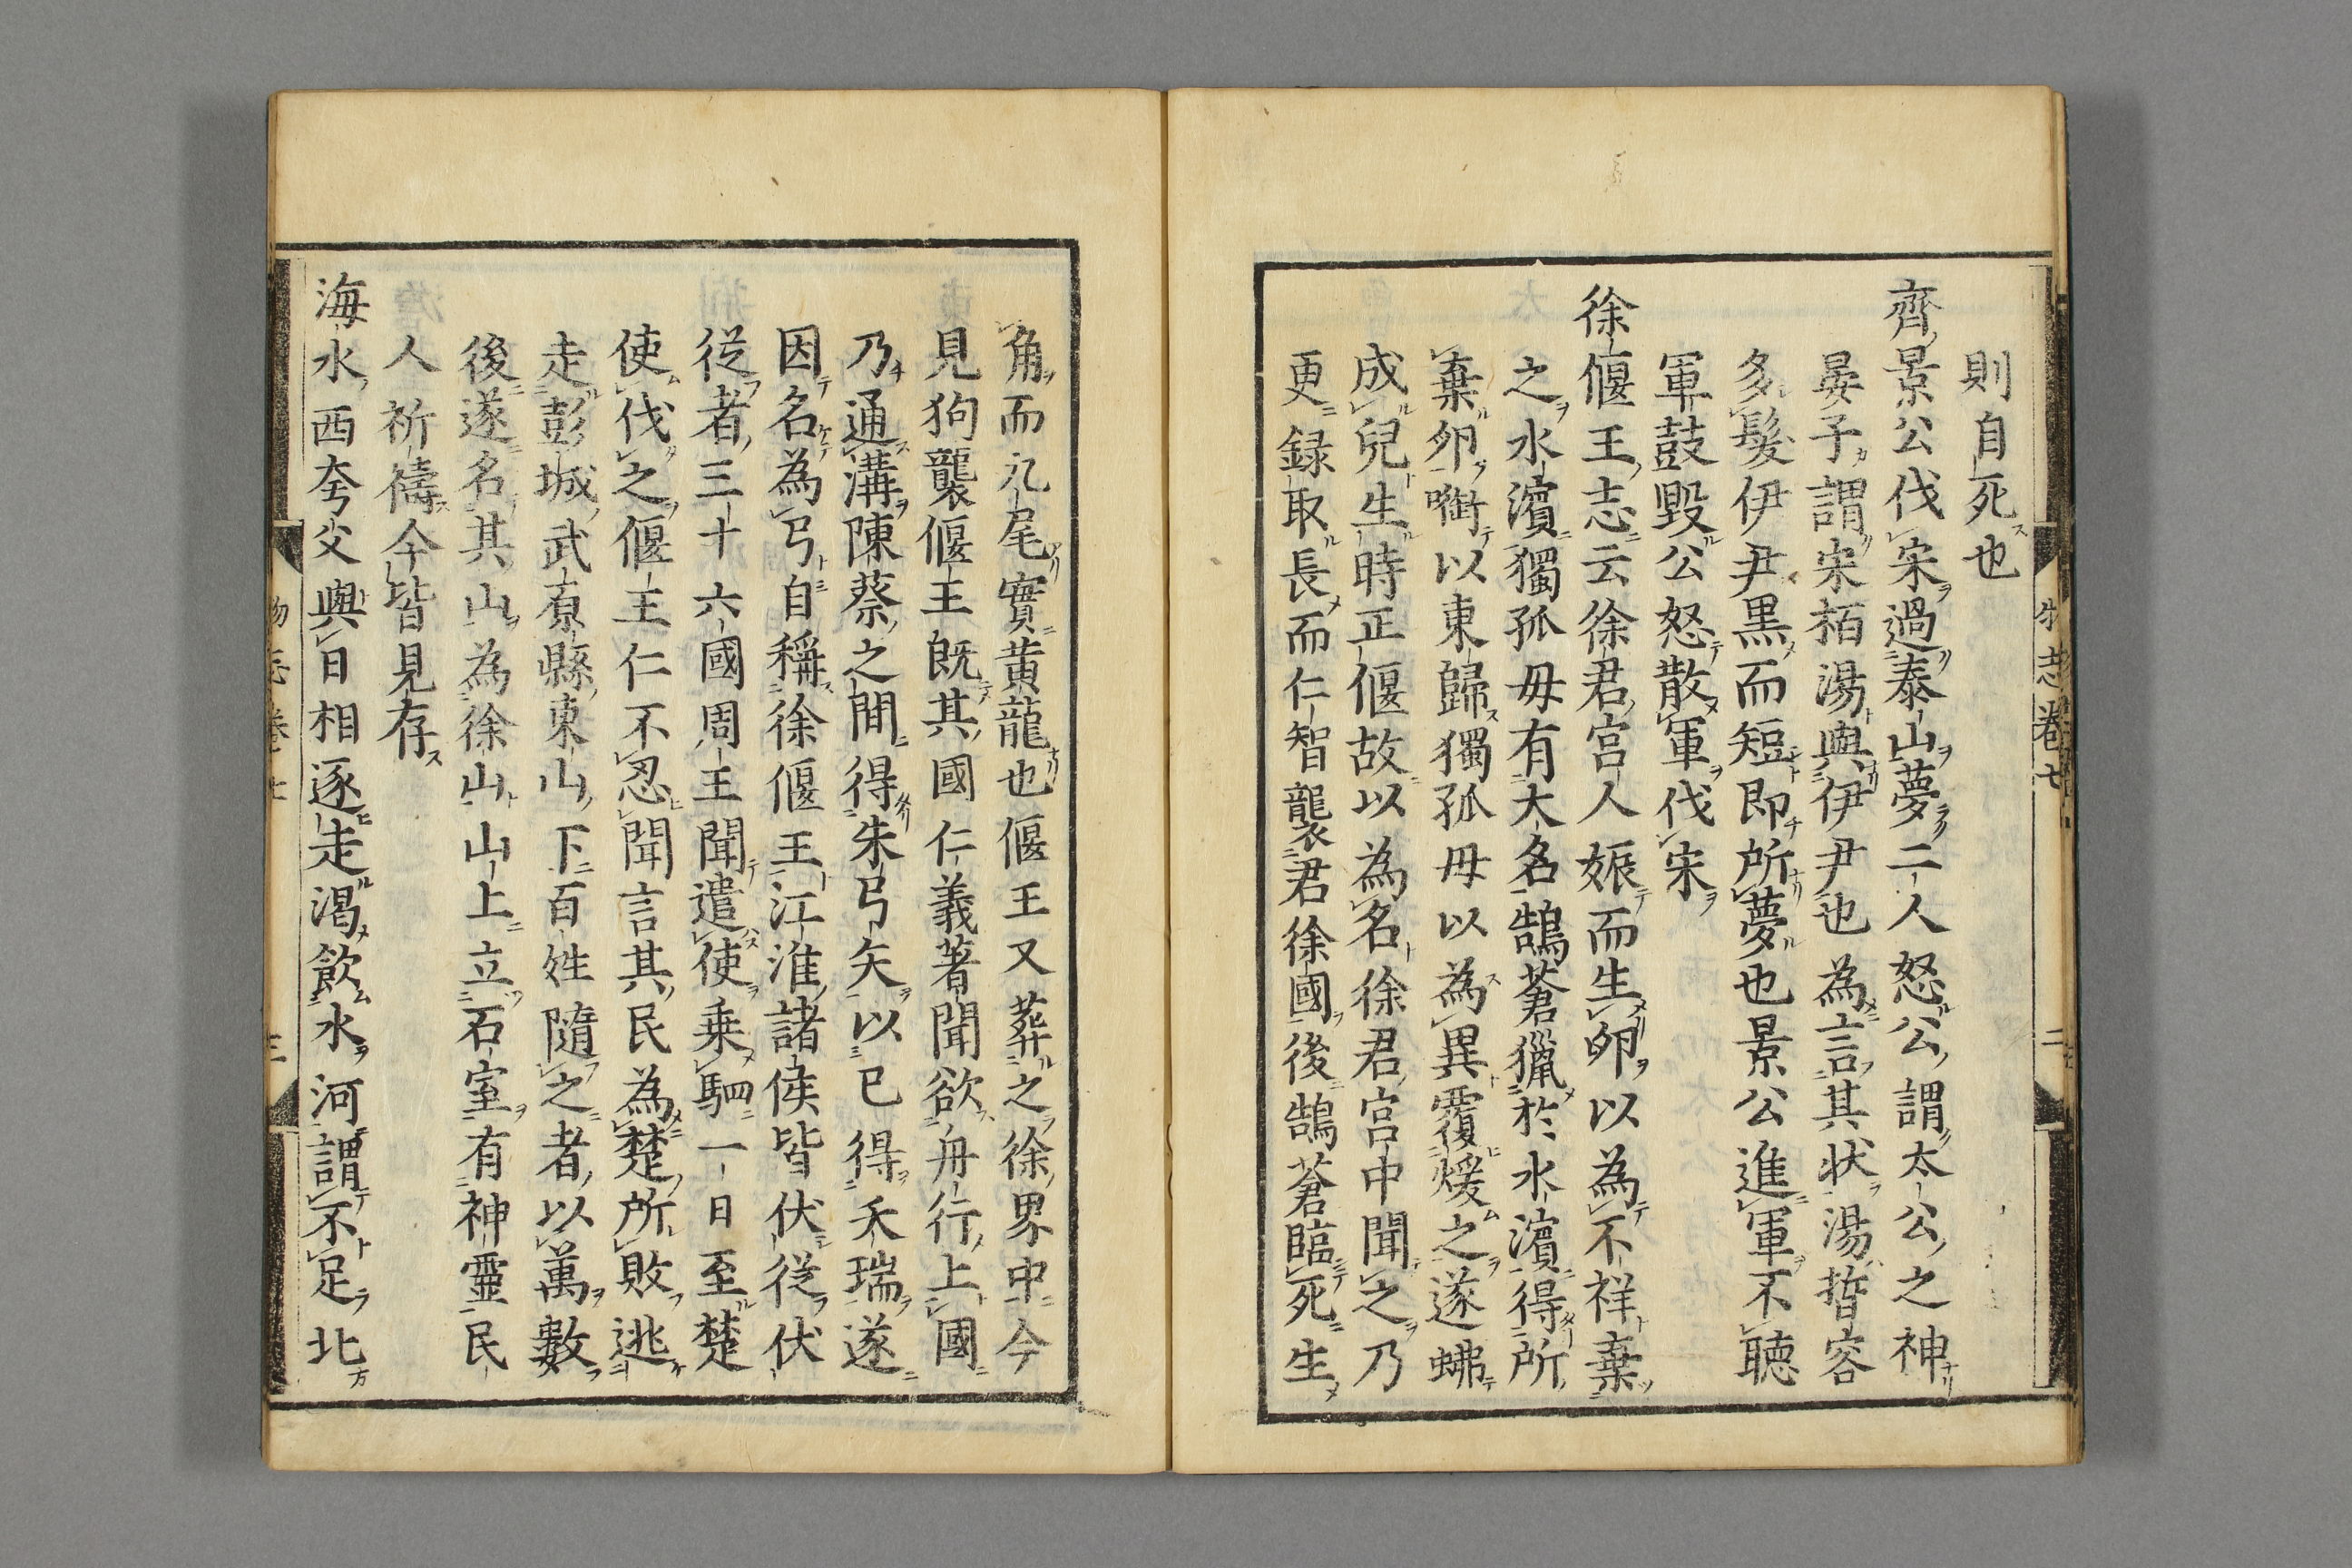 則自死也
齊景公伐宋過泰山夢二人怒公謂太公之神
晏子謂宋栢湯與伊尹也為言其状湯晳容
多髮伊尹黒而短即所夢也景公進軍不聴
軍鼓毀公怒散軍伐宋
徐偃王志云徐君宮人娠而生卵以為不祥棄
之水濱獨孤母有犬名鵠蒼獵於水濱得所
棄卵㗸以東歸獨孤母以為異覆煖之遂𧊧
成兒生時正偃故以為名徐君宮中聞之乃
更録取長而仁智襲君徐國後鵠蒼臨死生
角而九尾實黄龍也偃王又葬之徐界中今
見狗襲偃王既其國仁義著聞欲舟行上國
乃通溝陳蔡之間得朱弓矢以已得天瑞遂
因名為弓自稱徐偃王江淮諸侯皆伏従伏
従者三十六國周王聞遣使乗駟一日至楚
使伐之偃王仁不忍聞言其民為楚所敗逃
走彭城武原縣東山下百姓隨之者以萬數
後遂名其山為徐山山上立石室有神靈民
人祈禱今皆見存
海水西夸父與日相逐走渇飲水河謂不足北